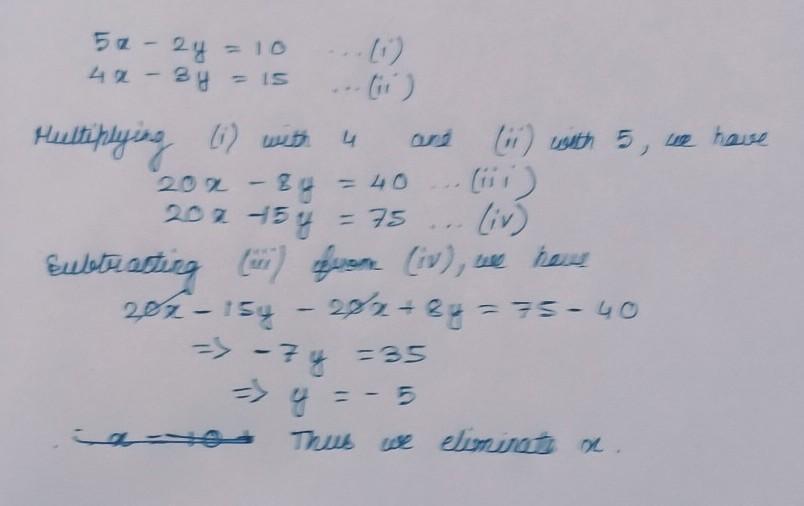 5x - 2y = 10 ...(i)
4x - 3y = 15 ...(ii)
Multiplying (i) with 4 and (ii) with 5, we have
20x - 8y = 40 ...(iii)
20x - 15y = 75 ... (iv)
Subtracting (iii) from (iv), we have
20x - 15y - 20x + 8y = 75 - 40
=> - 7y = 35
=> y = - 5
Thus we eliminate x.